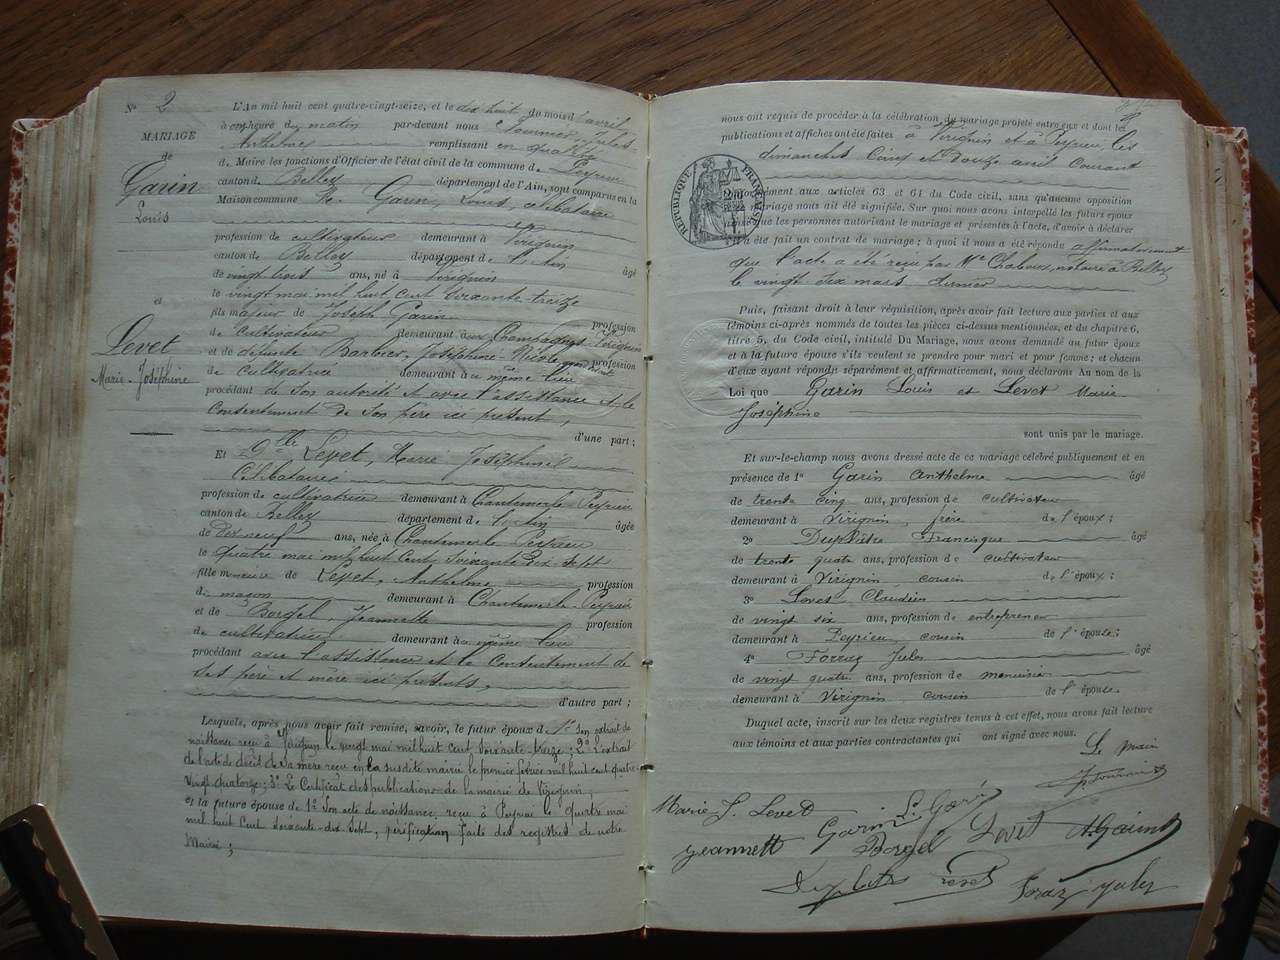 N° 2
MARIAGE
de
Garin
Louis
et
Levet
Marie Joséphine
L'An mil huit cent quatre-vingt-seize, et le dix huit du mois d'avril
à heure du matin par-devant nous Jules
Anthelme remplissant en qualité
d. Maire les fonctions d'Officier de l'état civil de la commune de Peyrieu
canton de Belley département de l'Ain, sont comparus en la
Maison commune M. Garin, Louis, célibataire
profession de cultivateur demeurant à Virignin
canton de Belley département de l'Ain âgé
de vingt deux ans, né à Virignin
le vingt mai mil huit cent soixante-treize
fils majeur de Joseph Garin profession
de cultivateur demeurant aux Champagnes Virignin
et de défunte Barbier, Joséphine Nicole profession
de cultivatrice demeurant à au même lieu
procédant de son autorité et avec l'assistance et le
consentement de son père ici présent,
d'une part ;
Et Dlle Levet, Marie Joséphine
Célibataire
profession de cultivatrice demeurant à Chantemerle Peyrieu
canton de Belley département de l'Ain âgée
de dix neuf ans, née à Chantemerle Peyrieu
le quatre mai mil huit cent soixante dix-sept
fille mineure de Levet, Anthelme profession
de maçon demeurant à Chantemerle Peyrieu
et de Borgel, Jeannette profession
de cultivatrice demeurant à au même lieu
procédant avec l'assistance et le consentement de
ses père et mère ici présents,
d'autre part ;
Lesquels, après nous avoir fait remise, savoir, le futur époux de 1° son extrait de
naissance reçu à le vingt mai mil huit cent soixante-treize ; 2° l'extrait
de l'acte de décès de sa mère reçu en la susdite mairie le premier mil huit cent quatre
vingt quatorze ; 3° Le Certificat des publications de la mairie de Virignin,
et la future épouse de 1° son acte de naissance, reçu à Peyrieu le quatre mai
mil huit cent soixante-dix sept, vérification faite des registres de notre
Mairie ;
nous ont requis de procéder à la célébration du mariage projeté entre eux et dont les
publications et affiches ont été faites à Virignin et à Peyrieu, les
dimanches cinq et douze avril courant
RÉPUBLIQUE FRANÇAISE
aux articles 63 et 64 du Code civil, sans qu'aucune opposition
mariage nous ait été signifiée. Sur quoi nous avons interpellé les futurs époux
que les personnes autorisant le mariage et présentes à l'acte, d'avoir à déclarer
s'il a été fait un contrat de mariage ; à quoi il nous a été répondu affirmativement
que l'acte a été reçu par Me notaire à Belley
le vingt six mars dernier
Puis, faisant droit à leur réquisition, après avoir fait lecture aux parties et aux
témoins ci-après nommés de toutes les pièces ci-dessus mentionnées, et du chapitre 6,
titre 5, du Code civil, intitulé Du Mariage, nous avons demandé au futur époux
et à la future épouse s'ils veulent se prendre pour mari et pour femme ; et chacun
d'eux ayant répondu séparément et affirmativement, nous déclarons Au nom de la
Loi que Garin Louis et Levet Marie
Joséphine
sont unis par le mariage.
Et sur-le-champ nous avons dressé acte de ce mariage célébré publiquement et en
présence de 1° Garin Anthelme âgé
de trente cinq ans, profession de cultivateur
demeurant à Virignin, frère de l'époux ;
2° Duplâtre Francisque âgé
de trente quatre ans, profession de cultivateur
demeurant à Virignin cousin de l'époux ;
3° Levet Claudius
de vingt six ans, profession de entrepreneur
demeurant à Peyrieu, cousin de l'épouse ;
4° Jules âgé
de vingt quatre ans, profession de menuisier
demeurant à Virignin cousin de l'épouse.
Duquel acte, inscrit sur les deux registres tenus à cet effet, nous avons fait lecture
aux témoins et aux parties contractantes qui ont signé avec nous.
Le Maire
Marie J. Levet
Garin L. Garin
Jeannette Borgel Levet
Levet